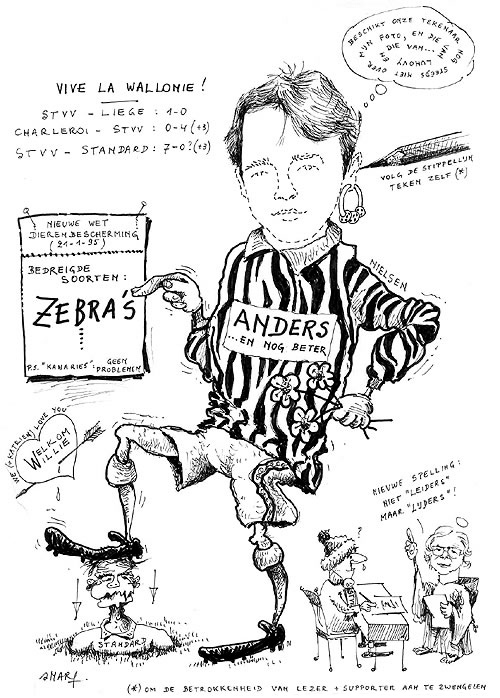 BESCHIKT ONZE TEKENAAR NOG
STEEDS NIET OVER
MIJN FOTO, EN DIE VAN
EN DIE VAN...
VIVE LA WALLONIE !
STVV - LIEGE : 1-0
CHARLEROI - STVV : 0-4 (+3)
STVV - STANDARD : 7-0? (+3)
VOLG DE STIPPELLIJN
TEKEN ZELF (*)
NIEUWE WET
DIERENBESCHERMING
(21-1-95)
BEDREIGDE
SOORTEN:
ZEBRA'S
P.S. "KANARIES": GEEN
PROBLEMEN
NIELSEN
ANDERS
...EN NOG BETER
WE (+KATRIEN) LOVE YOU
WELKOM
WILLIE
NIEUWE SPELLING:
NIET "LEIDERS"
MAAR "LIJDERS"!
?
STANDARD
(*) OM DE BETROKKENHEID VAN LEZER + SUPPORTER AAN TE ZWENGELEN